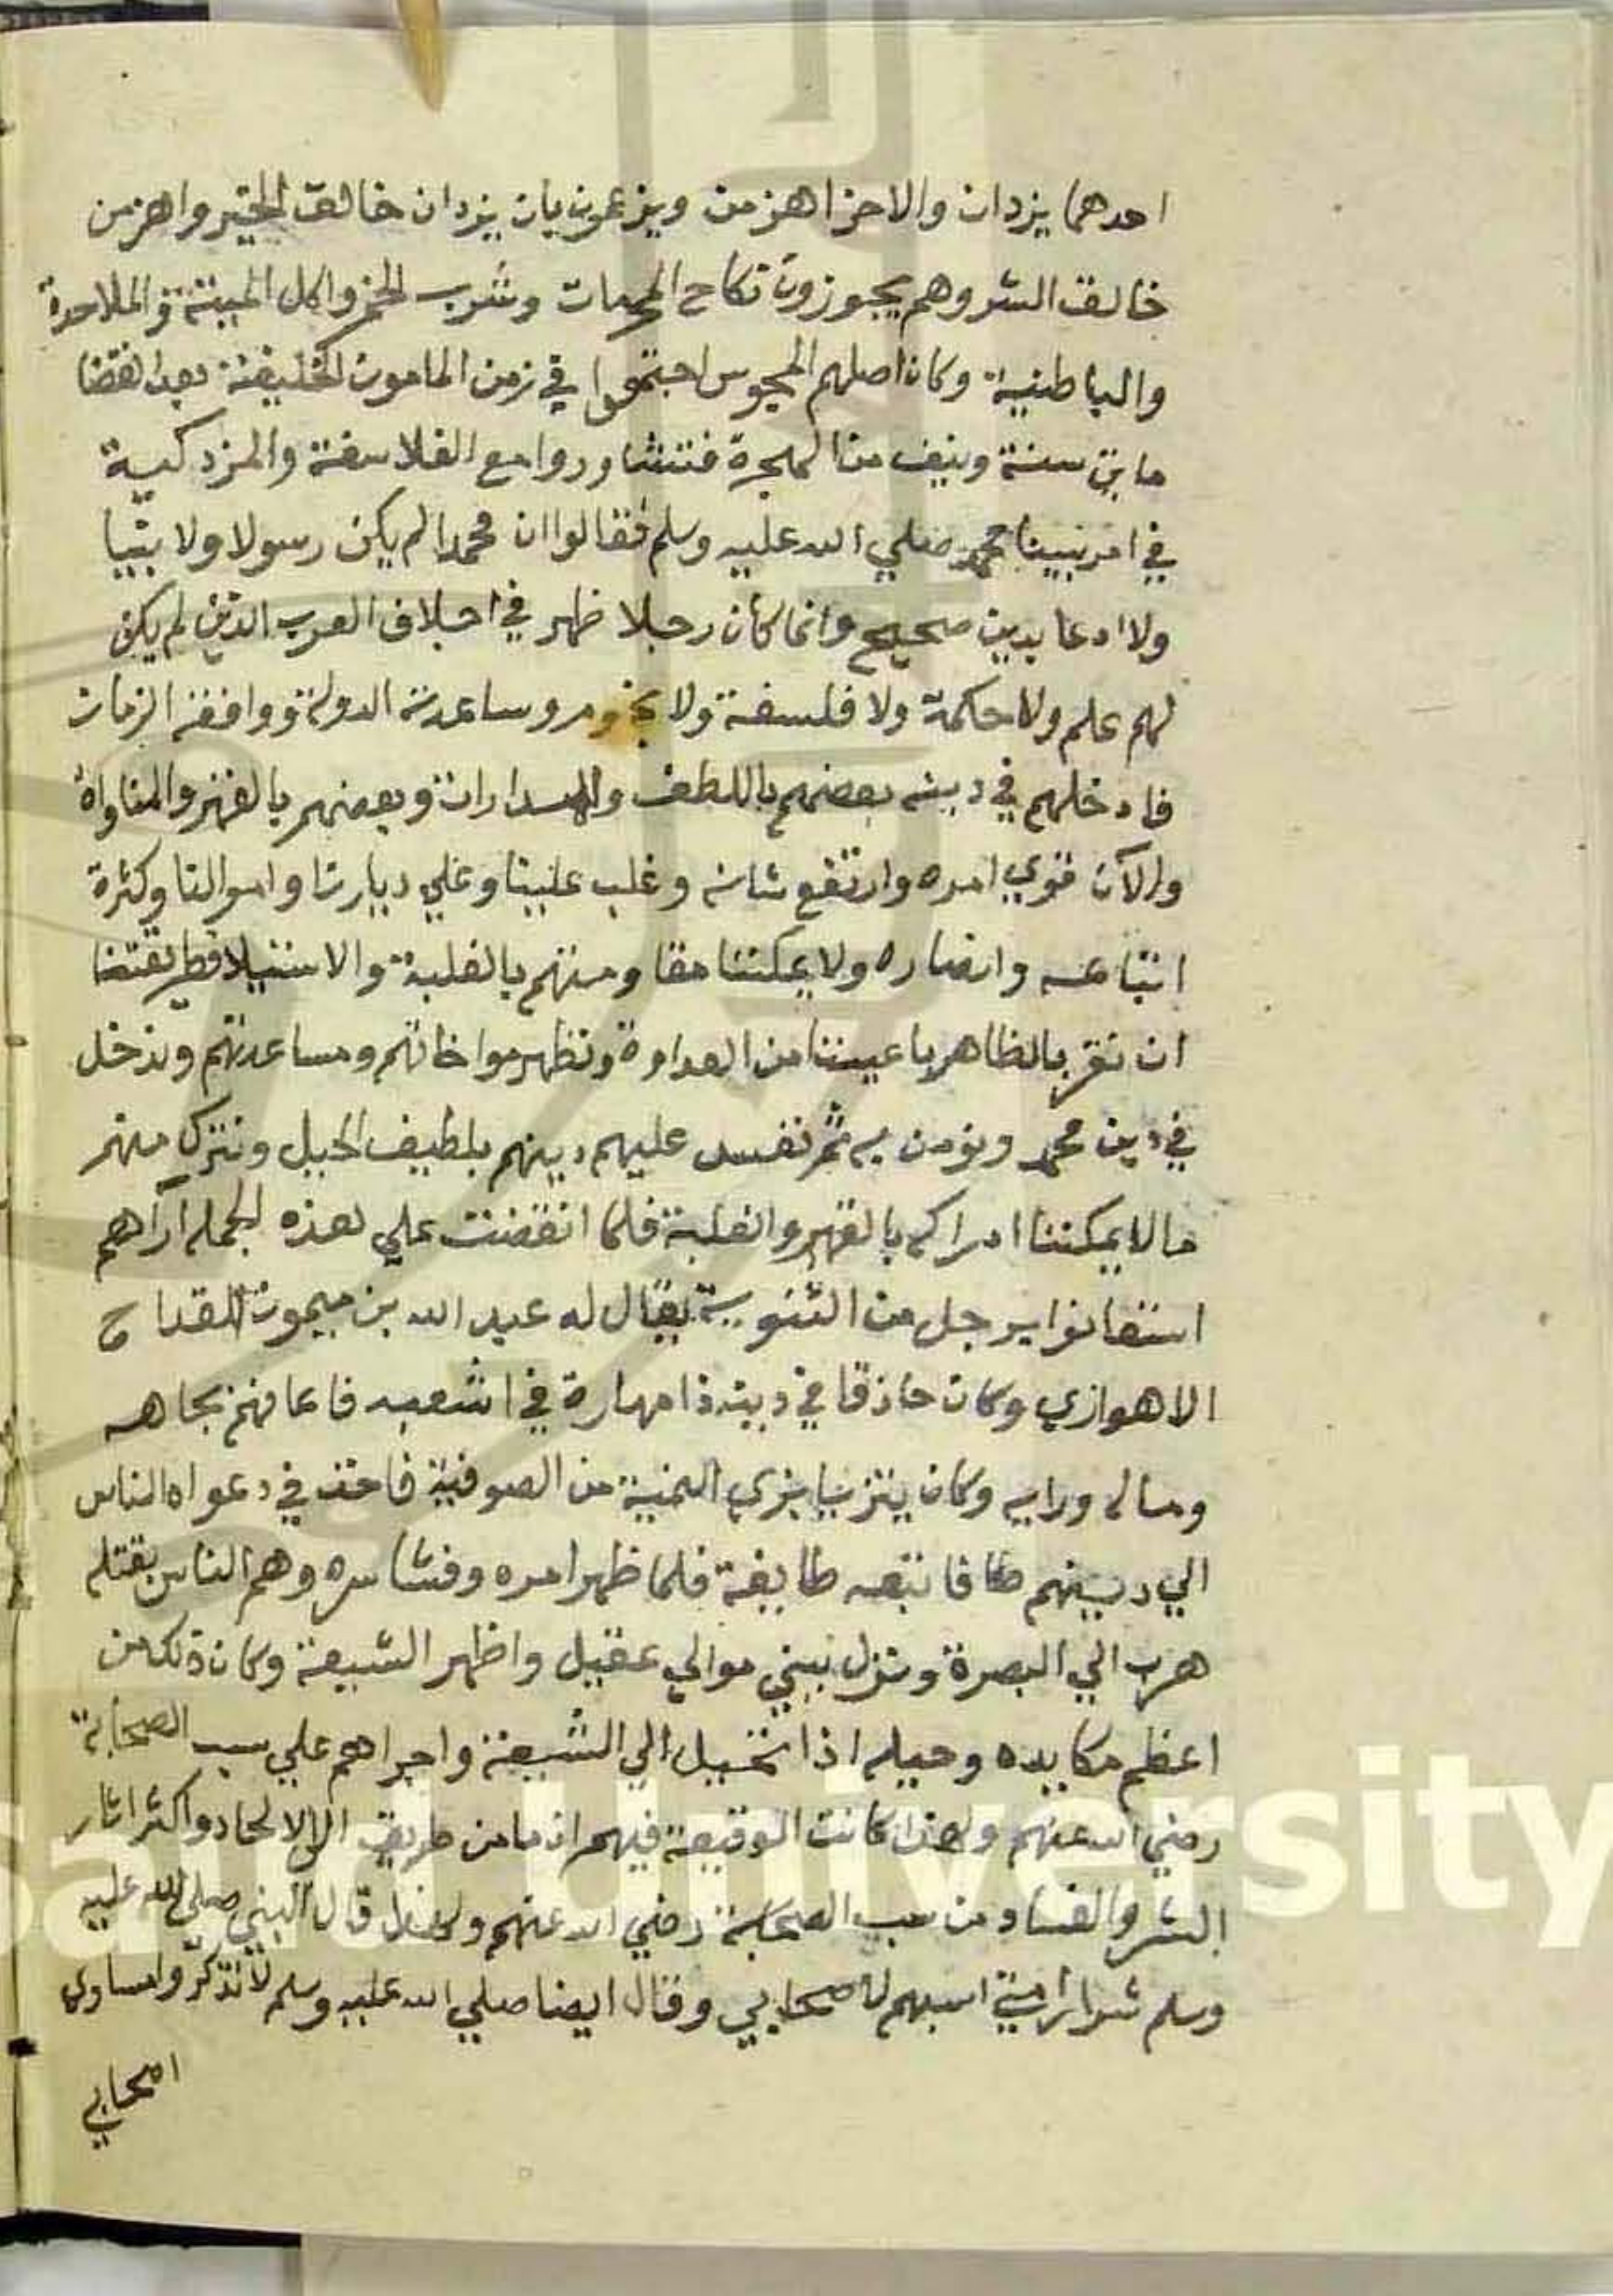 احدهما يزدان والاخر اهزمن ويزعمون بان يزدان خالق الخير واهزمن
خالق الشر وهم يجوزون نكاح المحرمات وشرب الخمر واكل الميتة والملاحدة
والباطنية وكان اصلهم المجوس اجتمعوا في زمن المامون الخليفة بعد انقضا
مايتي سنة ونيف من الهجرة فتشاوروا مع الفلاسفة والمزدكية
في امر نبينا محمد صلي الله عليه وسلم فقالوا ان محمدا لم يكن رسولا ولا نبيا
ولا ادعا بدين صحيح وانما كان رجلا ظهر في اجلاف العرب الذين لم يكن
لهم علم ولا حكمة ولا فلسفة ولا نجوم وساعدته الدولة ووافقه الزمان
فادخلهم في دينه بعضهم باللطف والمدارات وبعضهم بالقهر والمناواة
والآن قوي امره وارتفع شانه وغلب علينا وعلي ديارنا واموالنا وكثرة
اتباعه وانصاره ولا يمكننا مقاومتهم بالغلبة والاستيلا فطريقتنا
ان نقر بالظاهر باعيننا من العداوة ونظهر مواخاتهم ومساعدتهم وندخل
في دين محمد ونومن به ثم نفسد عليهم دينهم بلطيف الحيل ونترك منهم
ما لا يمكننا ادراكه بالقهر والغلبة فلما انقضت علي هذه الجمله آراهم
استعانوا برجل من الثنوية يقال له عبد الله بن ميمون القداح
الاهوازي وكان حاذقا في دينه ذا مهارة في اشعبه فاعانهم بجاهه
وماله ورايه وكان يتزيا بزي اليمنية من الصوفية فاخذ في دعواه الناس
الي دينهم فاتبعه طايفة فلما ظهر امره وفشا سره وهم الناس بقتله
هرب الي البصرة ونزل ببني موالي عقيل واظهر الشيعة وكان ذلك من
اعظم مكايده وحيله اذا تخيل الي الشيعة واجراهم علي سب الصحابة
رضي الله عنهم ولهذا كانت الوقيعة فيهم انما من طريق الالحاد واكثر اثار
الشر والفساد من سب الصحابة رضي الله عنهم ولهذا قال النبي صلي الله عليه
وسلم شرار امتي اسبهم لاصحابي وقال ايضا صلي الله عليه وسلم لا تذكروا مساوي
اصحابي